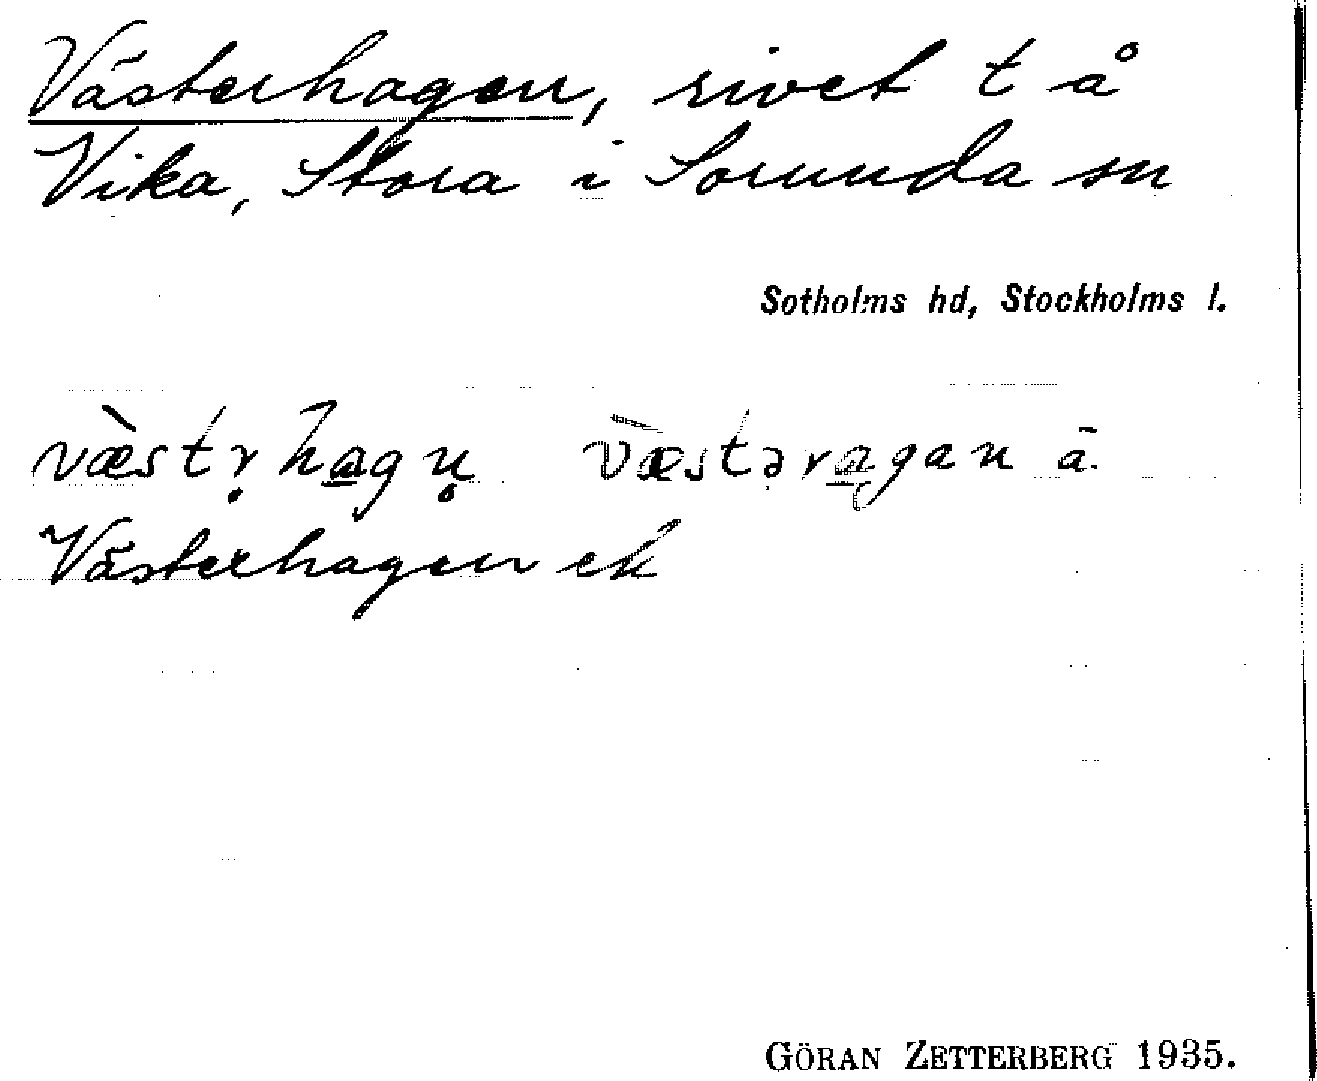 Västerhagen, rivet t å
Vika, Stora i Sorunda sn
Sotholms hd, Stockholms l.
væ̀stṛhagṇ væ̀stəragan ä.
Västerhagen ek
GÖRAN ZETTERBERG 1935.